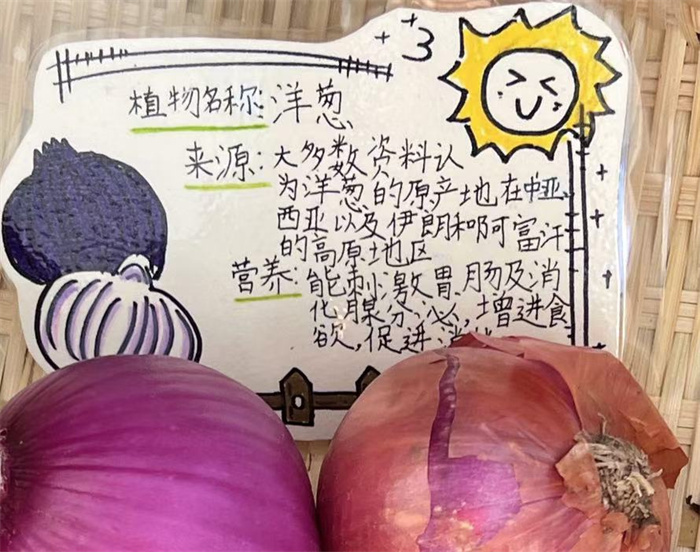 3
植物名称:洋葱
来源:大多数资料认
为洋葱的原产地在中亚、
西亚以及伊朗和阿富汗
的高原地区
营养:能刺激胃、肠及消
化腺分泌,增进食
欲,促进消